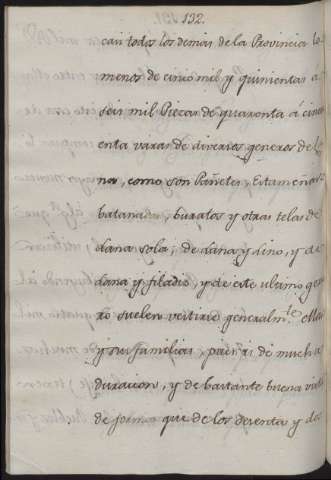 132.
can todos los demas de la Provincia lo
menos de cinco mil, y quinientas á
seis mil Piezas de quarenta á cinco
enta varas de diversos generos de la
nas, como son Pañetes, Estameñas
batanadas, buratos y otras telas de
Lana sola, de Lana y Lino, y de
Lana y filadis, y de este ultimo gene
ro suelen vestirse generalm.te
y sus familias, pues es de mucha
duracion, y de bastante buena vista
de forma que de los